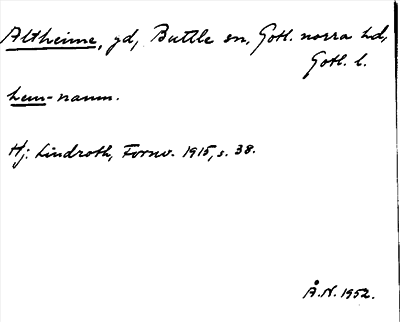 Altheime, gd, Buttle sn, Gotl. norra hd,
Gotl. l.
hem-namn.
Hj. Lindroth, Fornv. 1915, s. 38.
Å.N. 1952.